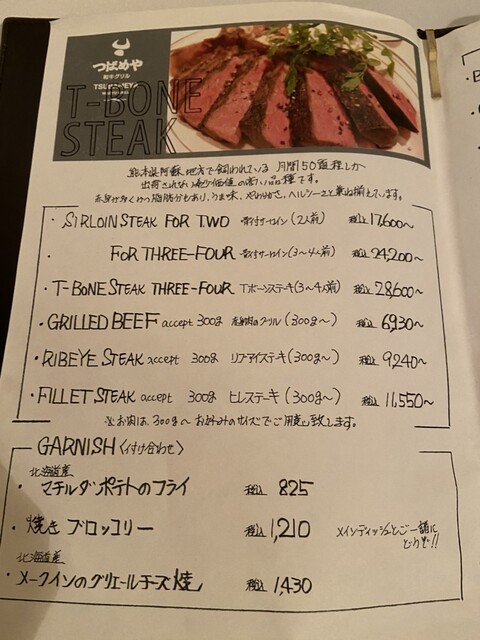 つばめや
和牛グリル
TSUBAMEYA
T-BONE
STEAK
熊本県阿蘇地方で飼われている 月間50頭程しか
出荷されない希少価値の高い品種です。
赤身が多くかつ脂肪分もあり、うま味、やわらかさ、ヘルシーさを兼ね揃えています。
・SIRLOIN STEAK FOR TWO 骨付サーロイン(2人前) 税込 17,600〜
・ FOR THREE-FOUR 骨付サーロイン(3〜4人前) 税込 24,200〜
・T-BONE STEAK THREE-FOUR Tボーンステーキ(3〜4人前) 税込 28,600〜
・GRILLED BEEF accept 300g 赤身肉のグリル(300g〜) 税込 6,930〜
・RIBEYE STEAK accept 300g リブアイステーキ(300g〜) 税込 9,240〜
・FILLET STEAK accept 300g ヒレステーキ(300g〜) 税込 11,550〜
※お肉は、300g〜お好みのサイズでご用意致します。
GARNISH〈付け合わせ〉
北海道産
・マチルダポテトのフライ 税込 825
・焼きブロッコリー 税込 1,210 メインディッシュとご一緒に
どうぞ!!
北海道産
・メークインのグリュエールチーズ焼 税込 1,430